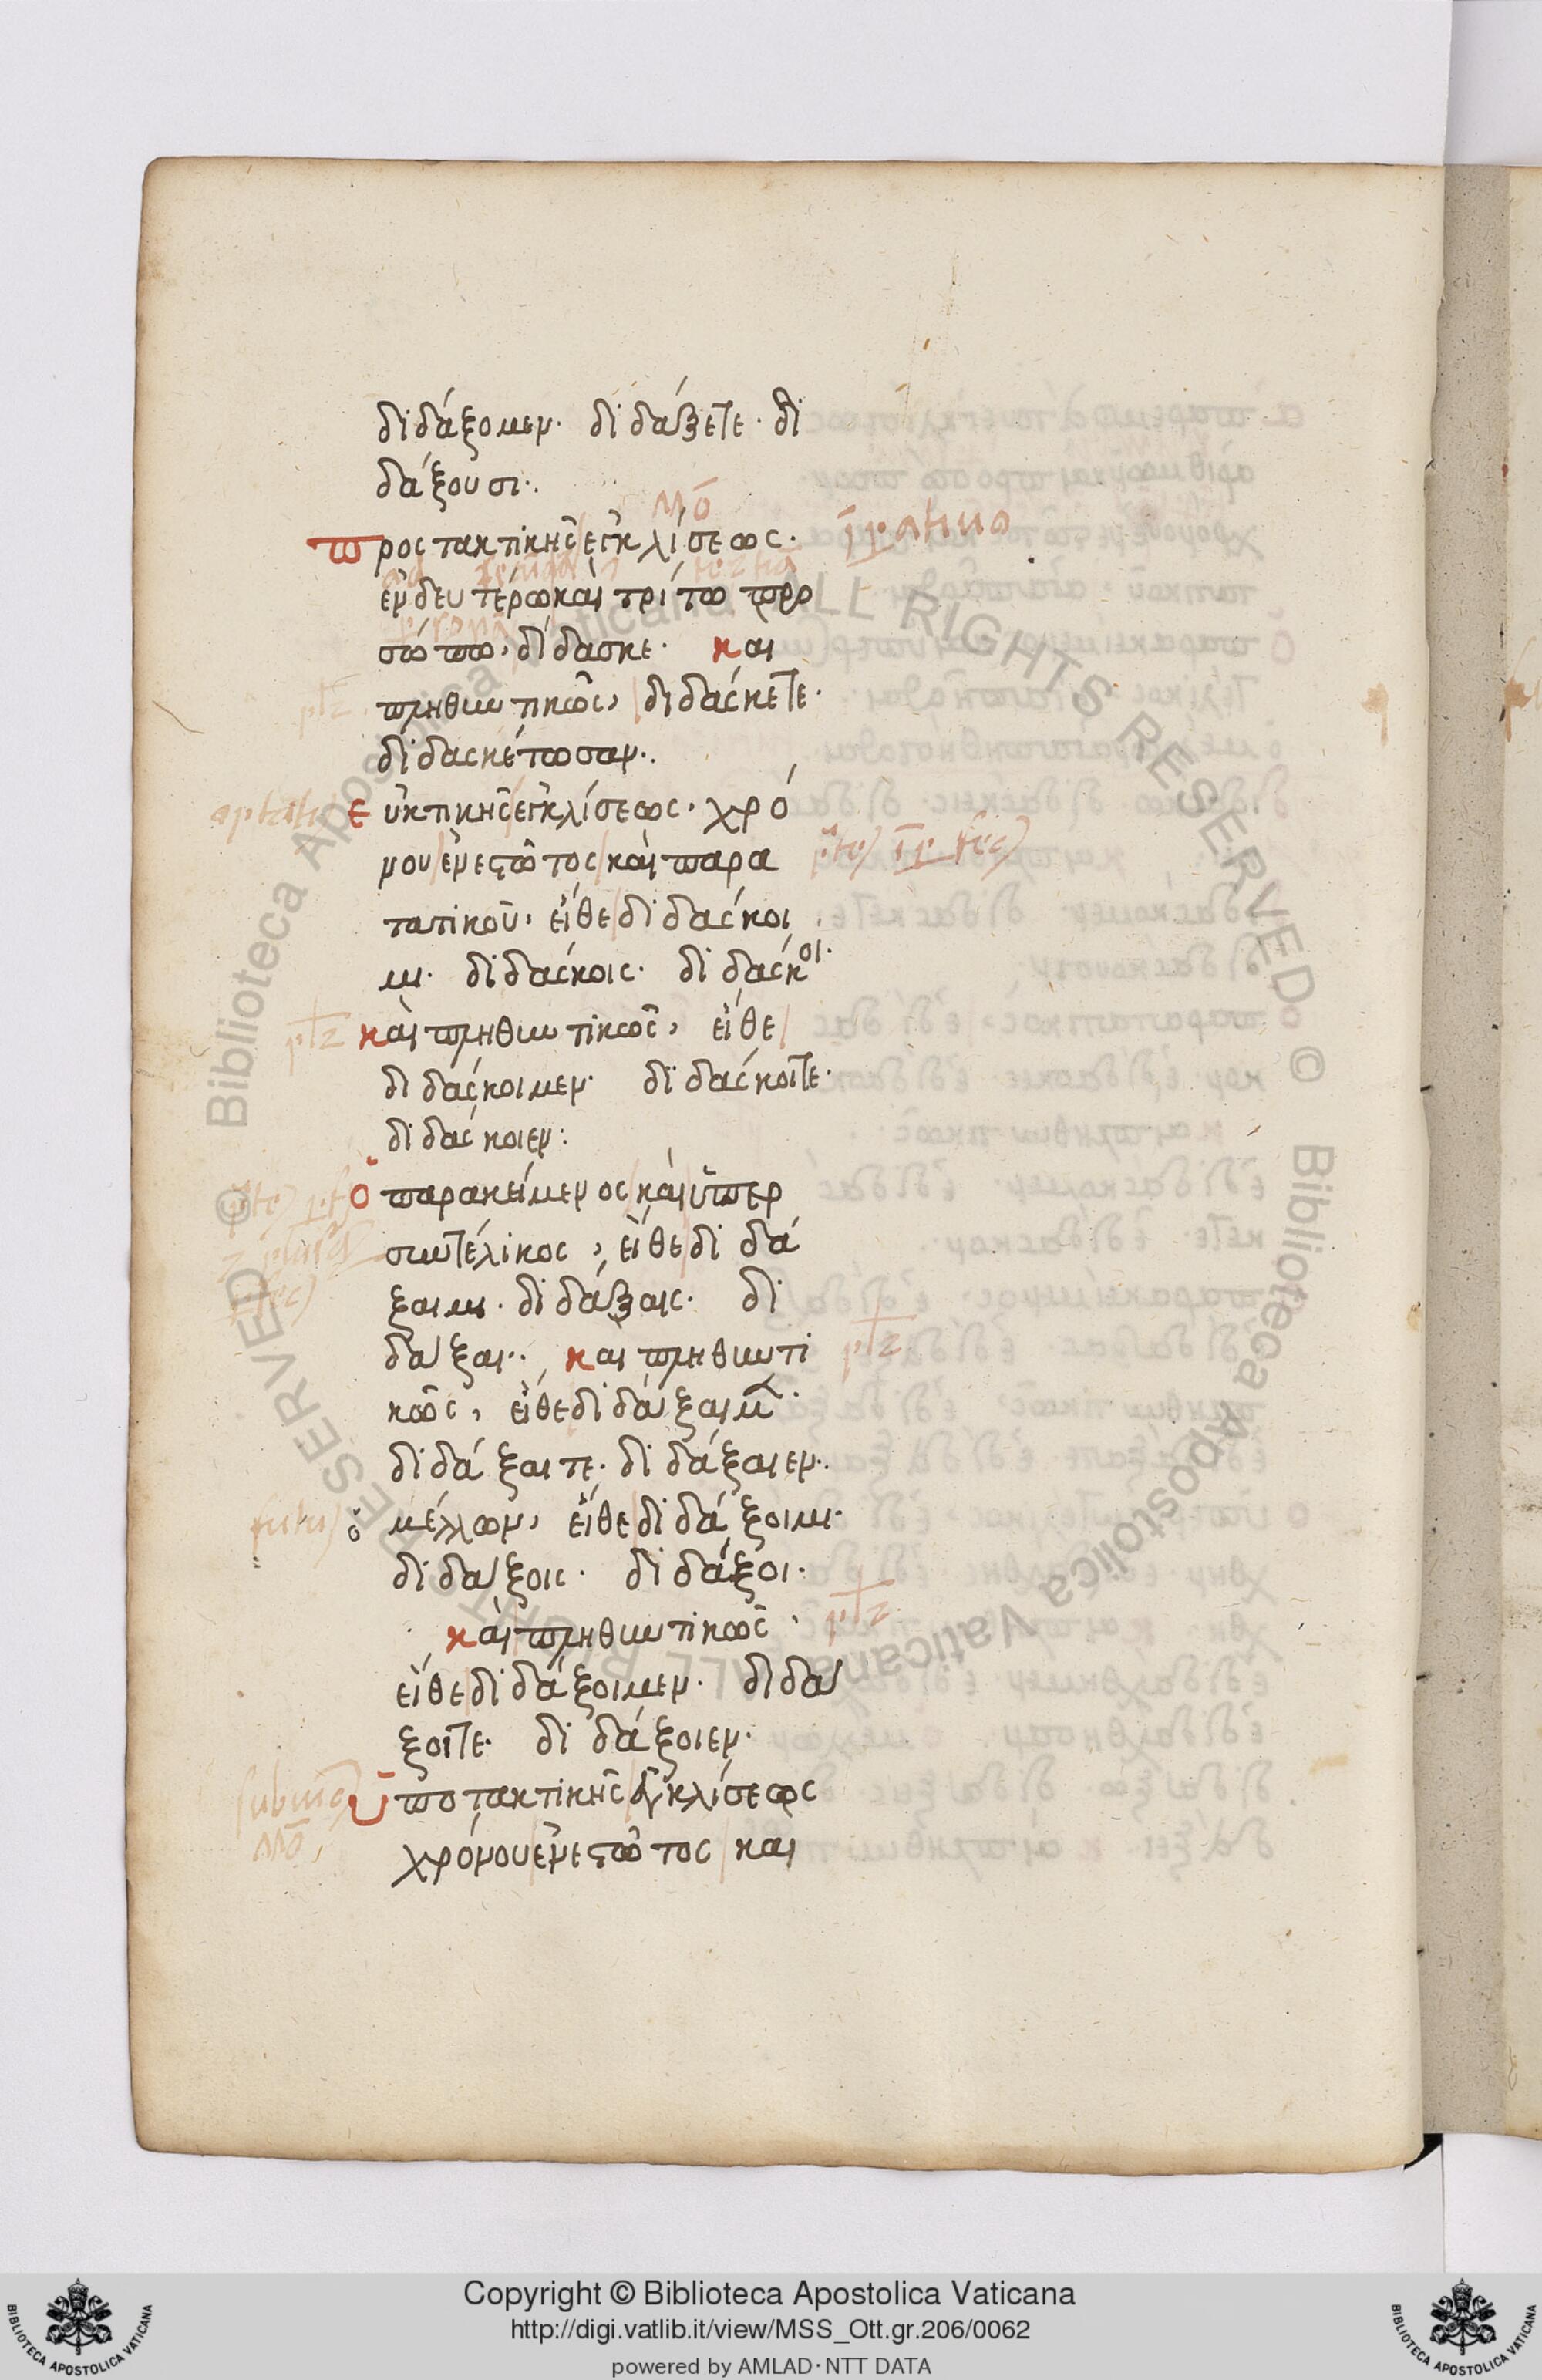 διδάξομεν· διδάξετε· δι
δάξουσι·.
mō
προστακτικῆς ἐγκλίσεως·
ἐν δευτέρω καὶ τρίτω προ
σώπω, δίδασκε· και
πληθυντικῶς, διδάσκετε·
διδασκέτωσαν·.
εὐκτικῆς ἐγκλίσεως· χρό
νου ἐνεστῶτος καὶ παρα
τατικοῦ, εἴθε διδάσκοι
μι· διδάσκοις· διδάσκοι·
plz καὶ πληθυντικῶς, εἴθε
διδάσκοιμεν· διδάσκοιτε·
διδάσκοιεν:
ὁ παρακείμενος καὶ ὑπερ
συντέλικος, εἴθε διδά
ξαιμι· διδάξαις· δι
δάξαι·· και πληθυντι plz
κῶς, εἴθε διδάξαιμεν·
διδάξαιτε· διδάξαιεν·.
futu) ὁ μέλλων, εἴθε διδάξοιμι·
διδάξοις· διδάξοι·
καὶ πληθυντικῶς, plz
εἴθε διδάξοιμεν· διδά
ξοιτε· διδάξοιεν·
ὑποτακτικῆς ἐγκλίσεως
mō
χρόνου ἐνεστῶτος και
© Biblioteca Apostolica Vaticana ALL RIGHTS RESERVED
© Biblioteca Apostolica Vaticana ALL RIGHTS RESERVED
Copyright © Biblioteca Apostolica Vaticana
http://digi.vatlib.it/view/MSS_Ott.gr.206/0062
powered by AMLAD·NTT DATA
BIBLIOTECA APOSTOLICA VATICANA
BIBLIOTECA APOSTOLICA VATICANA